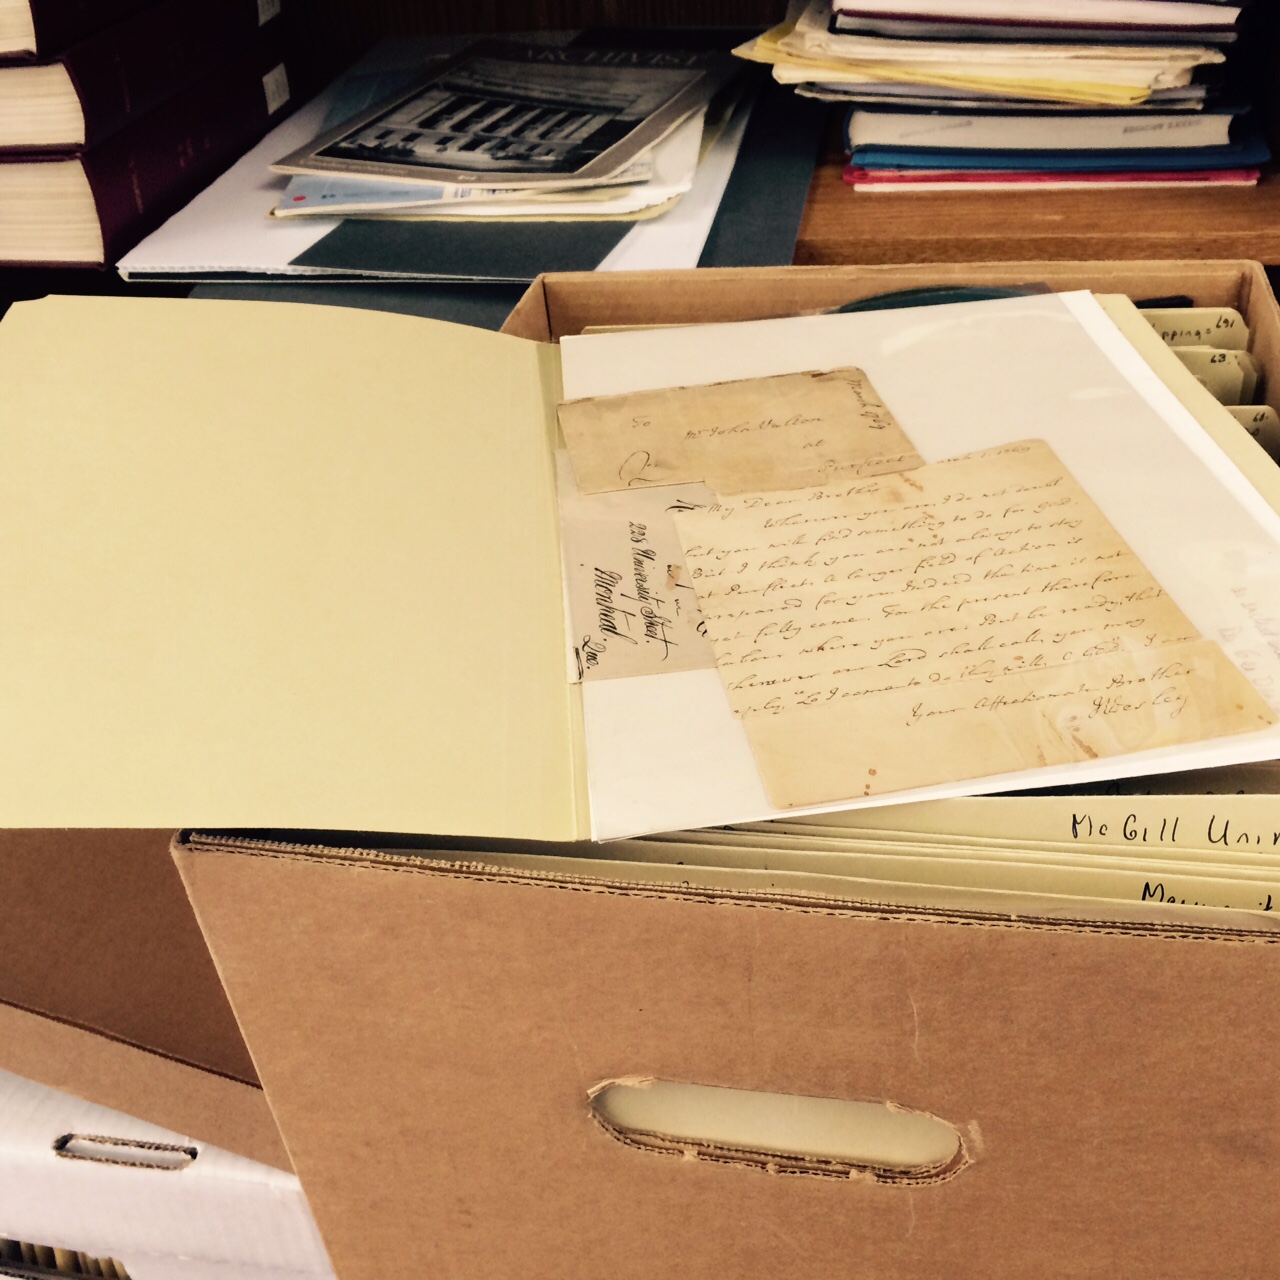 ARCHIVIST
pping = 691
63
To
Mr John Valton
at
Purfleet
March 1769
March 1. 1769
My Dear Brother
Wherever you are, I do not doubt
but you will find something to do for God.
But I think, you are not always to stay
at Purfleet: A larger field of Action is
prepared for you. Indeed the time is not
yet fully come. For the present therefore
labour where you are: But be ready, that
wherever our Lord shall call, you may
reply, "Lo I come to do thy will, O God." I am
Your Affectionate Brother
JWesley
228 University Street.
Montreal.
Que.
McGill Univ